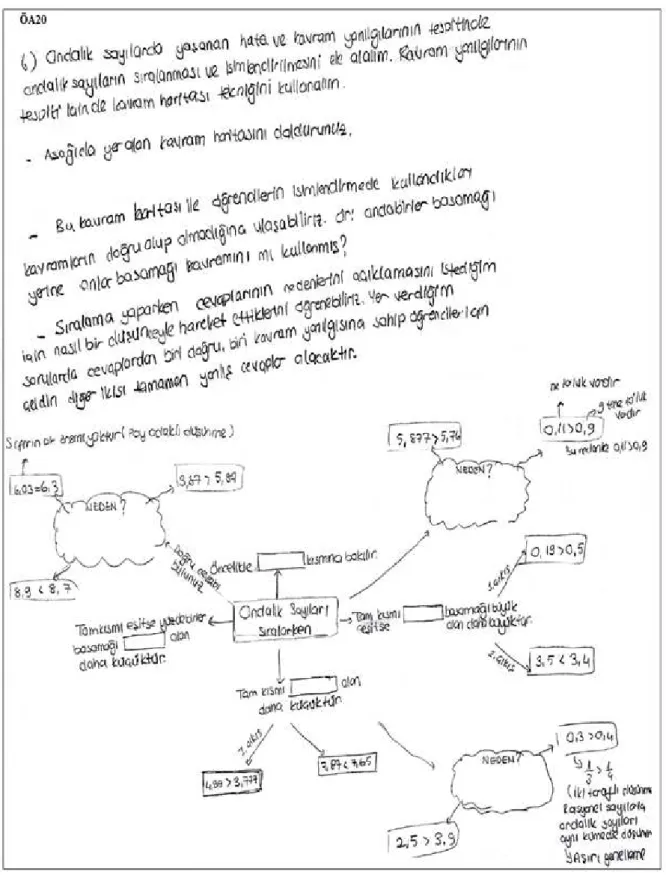 ÖA20
6) Ondalık sayılarda yaşanan hata ve kavram yanılgılarının tespitinde
ondalık sayıların sıralanması ve isimlendirilmesini ele alalım. Kavram yanılgılarının
tespiti için de kavram haritası tekniğini kullanalım.
- Aşağıda yer alan kavram haritasını doldurunuz.
- Bu kavram haritası ile öğrencilerin isimlendirmede kullandıkları
kavramların doğru olup olmadığına ulaşabiliriz. Ör; ondabirler basamağı
yerine onlar basamağı kavramını mı kullanmış?
- Sıralama yaparken cevaplarının nedenlerini açıklamasını istediğim
için nasıl bir düşünceyle hareket ettiklerini öğrenebiliriz. Yer verdiğim
sorularda cevaplardan biri doğru, biri kavram yanılgısına sahip öğrenciler için
diğer ikisi tamamen yanlış cevaplar olacaktır.
Sıfırın bir önemi yoktur (Pay odaklı düşünme)
6,03=6,3
NEDEN?
8,9 < 8,7
Doğru cevabı bulunuz
5,877 > 5,76
NEDEN?
ne 10'luk vardır
0,11>0,9
9 tane 10'luk vardır
Bu nedenle 0,11>0,9
Öncelikle
kısmına bakılır.
Ondalık Sayıları
Sıralarken
Tam kısmı eşitse yüzdebirler
basamağı
olan
daha küçüktür.
Tam kısmı
eşitse
basamağı büyük
olan daha büyüktür.
1.çıkış
0,19 > 0,5
2.çıkış
3,5 < 3,4
Tam kısmı
olan
daha küçüktür.
4,99 > 3,777
7,87 < 7,65
NEDEN?
2,5 > 3,9
0,3 > 0,4
1/3 > 1/4
(İki taraflı düşünme
Rasyonel sayılarla
ondalık sayıları
aynı kümede düşünme
Aşırı genelleme